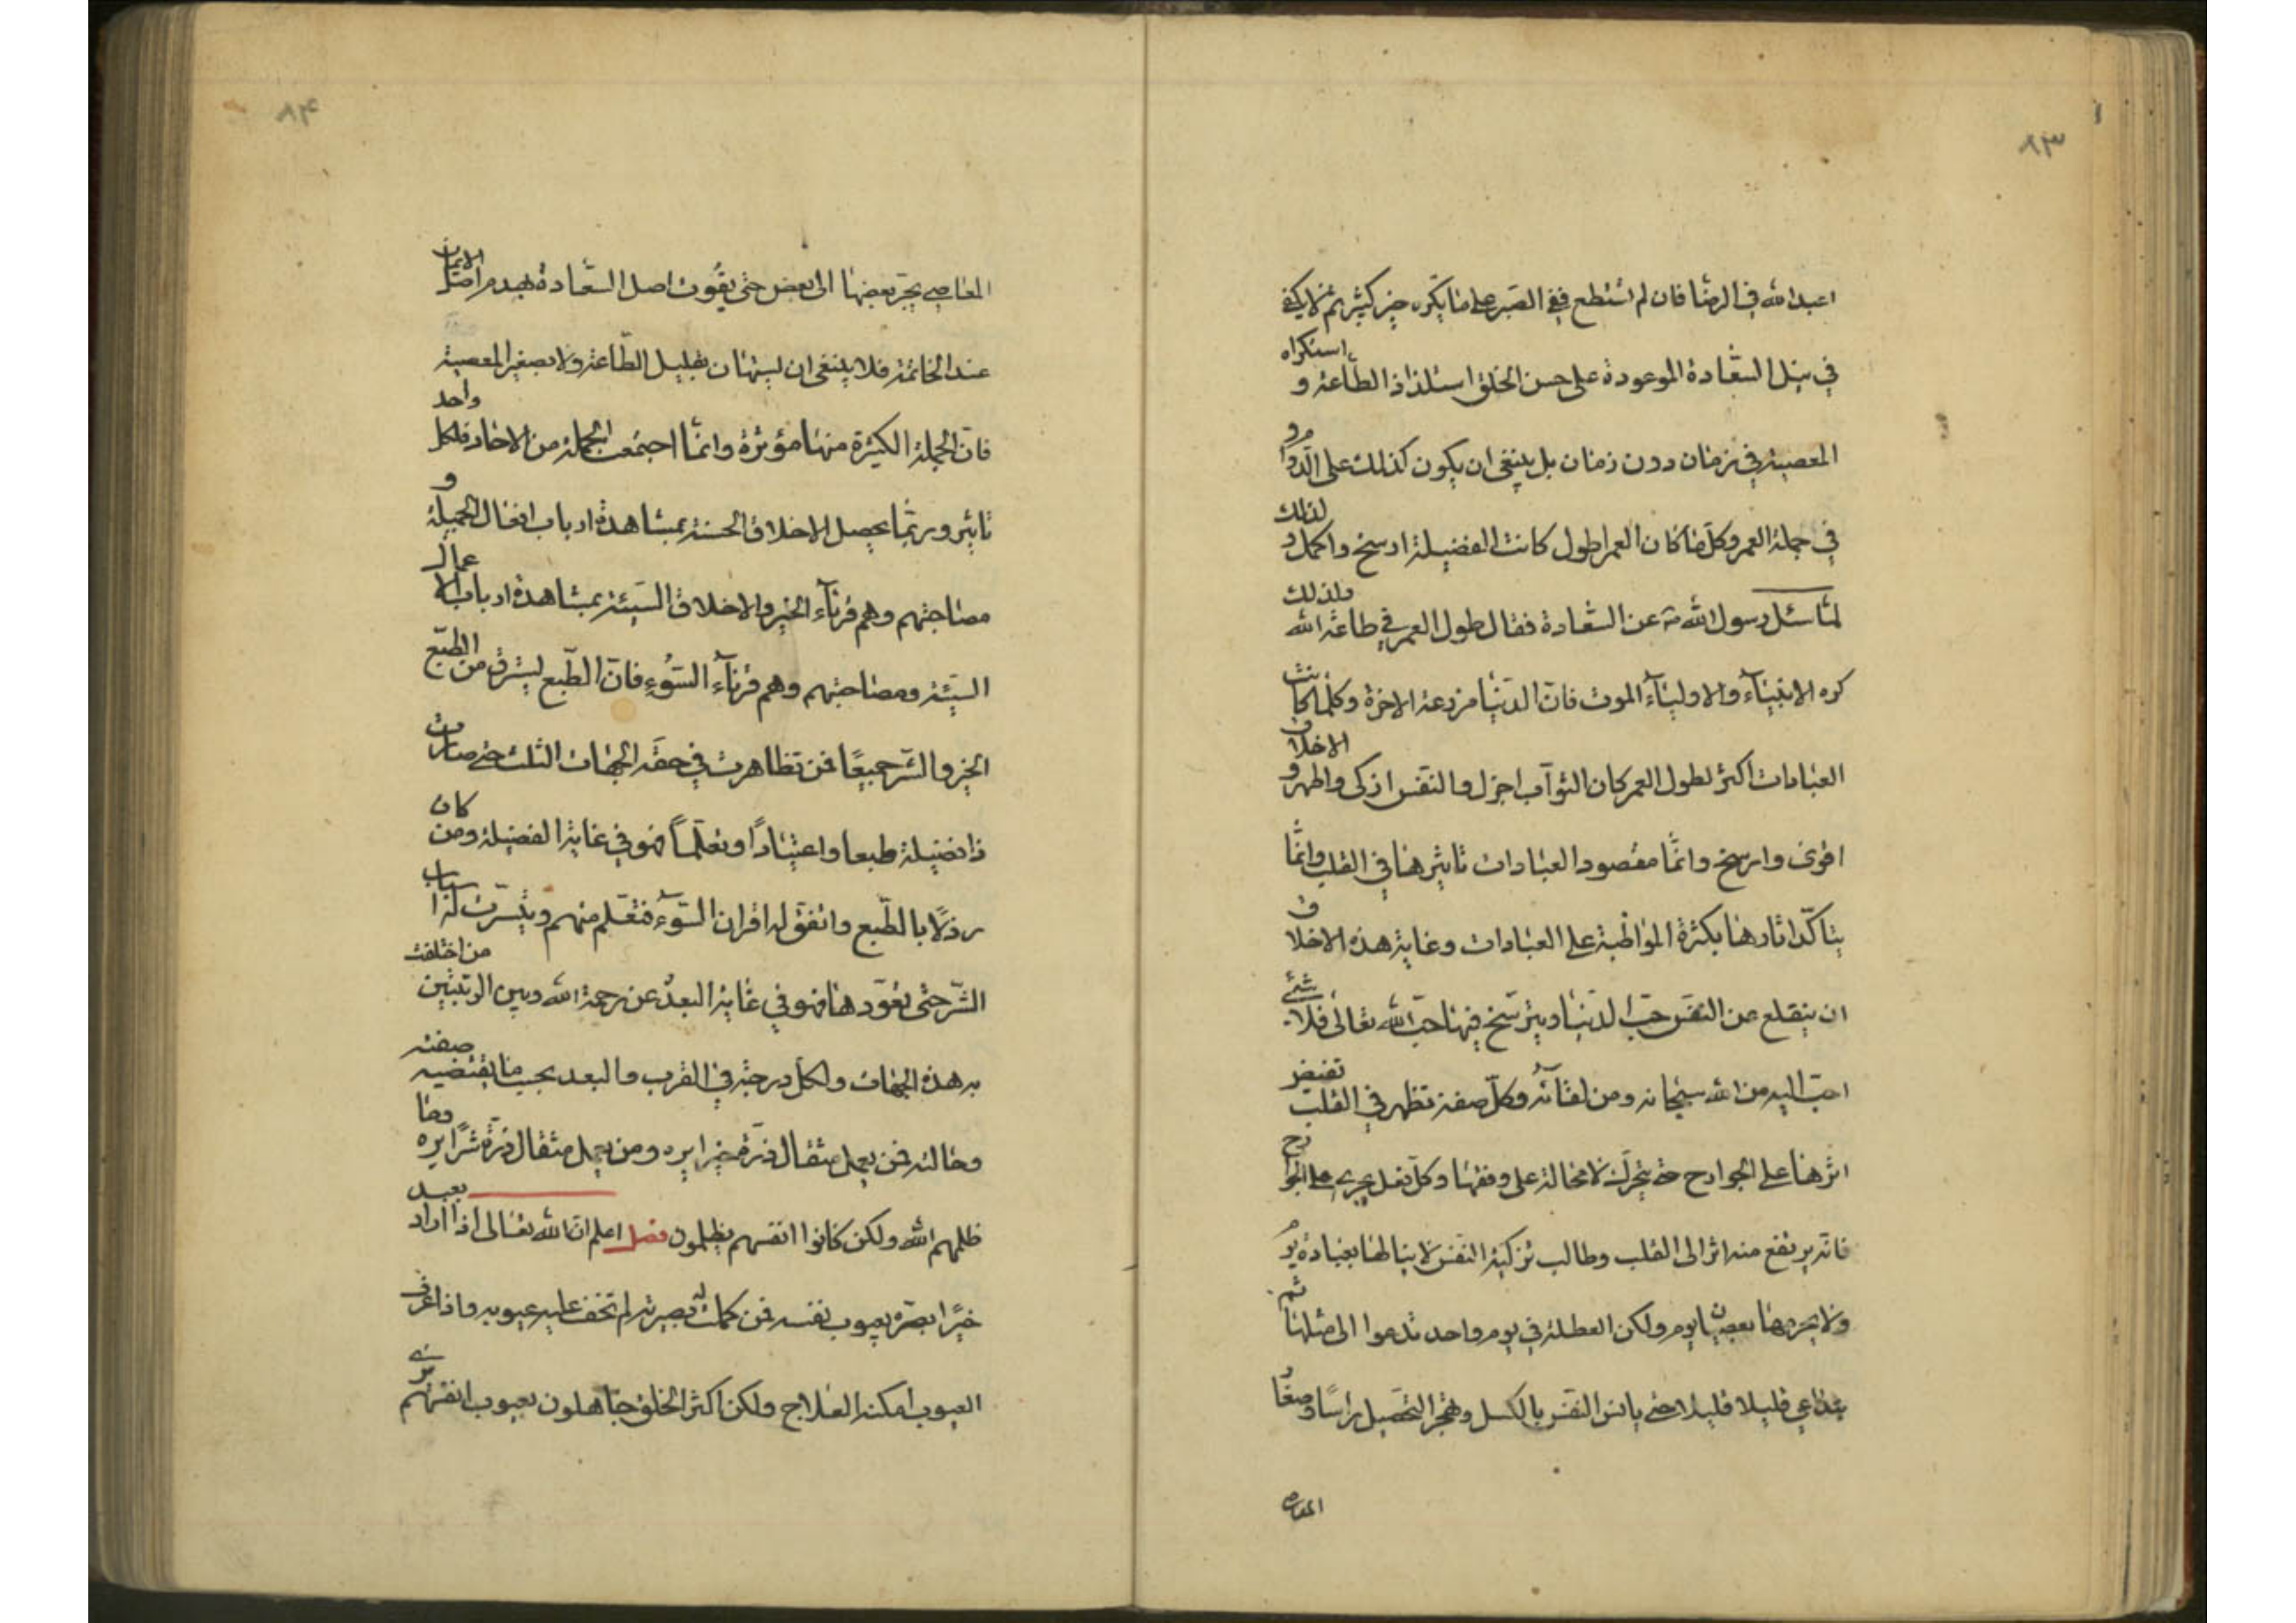 ٨٣
اعبد الله فى الرضا فان لم تستطع ففى الصبر على ما تكره خير كثير ثم لا يكفى
فى نيل السعادة الموعودة على حسن الخلق استلذاذ الطاعة و استكراه
المعصية فى زمان دون زمان بل ينبغى ان يكون كذلك على الدوام و
فى جملة العمر وكل ما كان العمر اطول كانت الفضيلة ارسخ واكمل و لذلك
لما سئل رسول الله ص عن السعادة فقال طول العمر فى طاعة الله ولذلك
كره الانبياء والاولياء الموت فان الدنيا مزرعة الاخرة وكلما كانت
العبادات اكثر لطول العمر كان الثواب اجزل والنفس ازكى واطهر و الاخلاق
اقوى وارسخ وانما مقصود العبادات تاثيرها فى القلب وانما
يتاكد اثارها بكثرة المواظبة على العبادات وغاية هذه الاخلاق
ان ينقلع عن النفس حب الدنيا ويترسخ فيها حب الله تعالى فلا شئ
احب اليه من الله سبحانه ومن لقائه وكل صفة تظهر فى القلب تفيض
اثرها على الجوارح حتى يتحرك لا محالة على وفقها وكل فعل يجرى على الجوارح
فانه يرتفع منه اثر الى القلب وطالب تزكية النفس لا ينالها بعبادة يوم
ولا يحرمها بعصيان يوم ولكن العطلة فى يوم واحد تدعوا الى مثلها ثم
يتداعى قليلا قليلا حتى يانس النفس بالكسل وهجر التحصيل راسا وصغار
المعاصى
٨٤
المعاصى يجر بعضها الى بعض حتى يفوت اصل السعادة بهدم اصل الايمان
عند الخاتمة فلا ينبغى ان يستهان بقليل الطاعة ولا بصغير المعصية
فان الجملة الكثيرة منها مؤثرة وانما اجتمعت الجملة من الاحاد فلكل واحد
تاثير وربما يحصل الاخلاق الحسنة بمشاهدة ارباب افعال الجميلة و
مصاحبتهم وهم قرناء الخير والاخلاق السيئة بمشاهدة ارباب الاعمال
السيئة ومصاحبتهم وهم قرناء السوء فان الطبع يسرق من الطبع
الخير والشر جميعا فمن تظاهرت فى حقه الجهات الثلث حتى صارت
ذا فضيلة طبعا واعتيادا وتعلما فهو فى غاية الفضيلة ومن كان
رذلا بالطبع واتفق له اقران السوء فتعلم منهم وتيسرت له اسباب
الشر حتى تعودها فهو فى غاية البعد عن رحمة الله وبين الرتبتين من اختلفت
به هذه الجهات ولكل درجة فى القرب والبعد بحسب ما يقتضيه صفته
وحالته فمن يعمل مثقال ذرة خيرا يره ومن يعمل مثقال ذرة شرا يره وما
ظلمهم الله ولكن كانوا انفسهم يظلمون فصل اعلم ان الله تعالى اذا اراد بعبد
خيرا بصره بعيوب نفسه فمن كملت له بصيرته لم تخف عليه عيوبه واذا عرف
العيوب امكنه العلاج ولكن اكثر الخلق جاهلون بعيوب انفسهم يرى